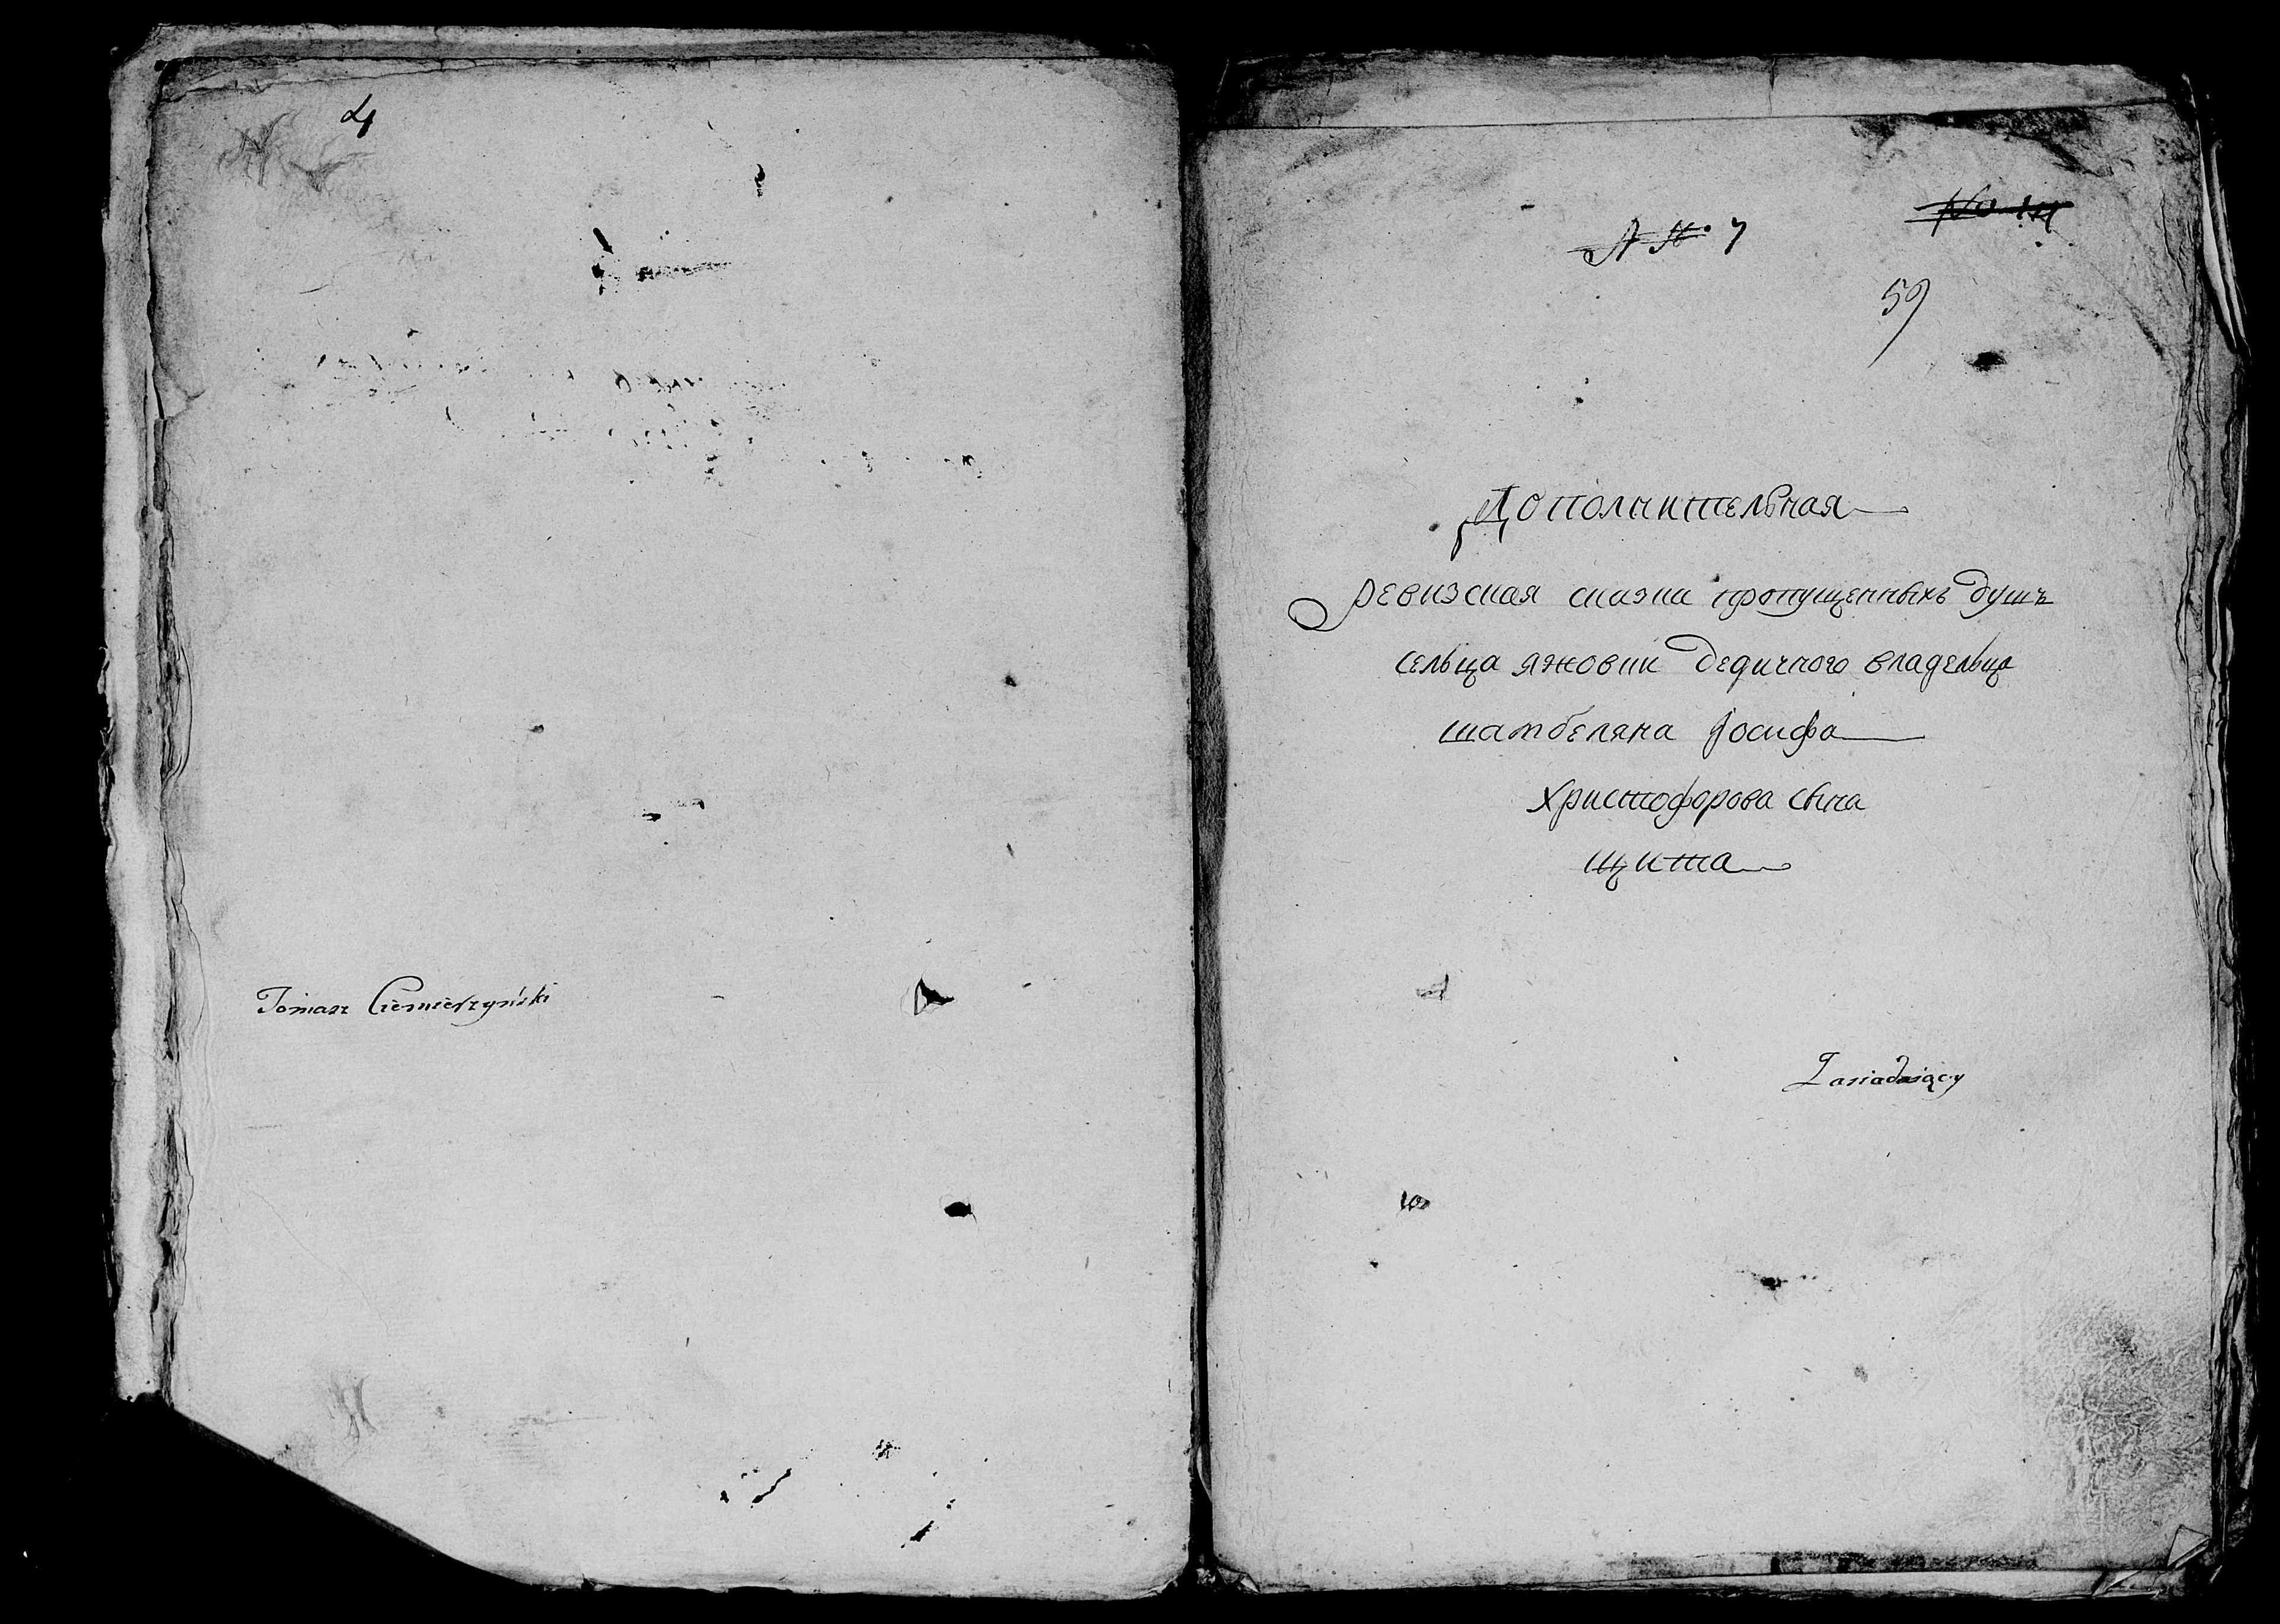 4
Tomasz Ciemierzyński
№ 7
59
Дополнительная
ревизская сказка пропущенныхъ душъ
сельца яжовки дедичного владельца
шамбеляна Иосифа
Христофорова сына
щита
Zasiadaiący